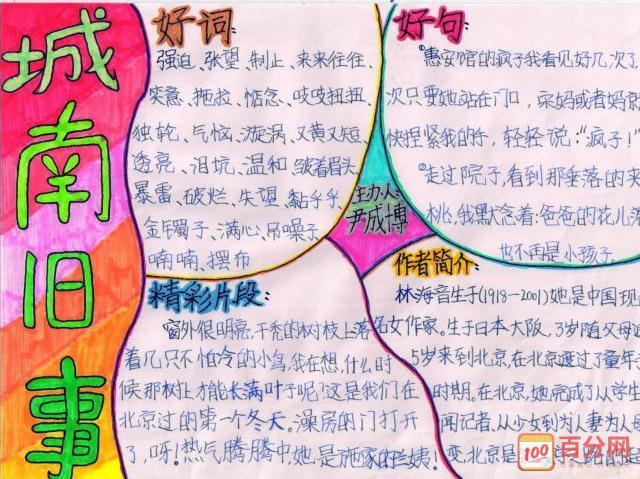 城南旧事
好词:
强迫、张望、制止、来来往往、
笑意、拖拉、惦念、吱吱扭扭、
独轮、气恼、漩涡、又黄又短、
透亮、泪坑、温和、皱着眉头、
暴雷、破烂、失望、黏乎乎、
金镯子、满心、吊嗓子、
喃喃、摆布
好句:
惠安馆的疯子我看见好几次了
次只要她站在门口，宋妈或者妈
快捏紧我的手，轻轻说:“疯子!
走过院子，看到那垂落的
桃，我默念着:爸爸的花儿
也不再是小孩子
主办人:
尹成博
精彩片段:
窗外很明亮，干秃的树枝上落
着几只不怕冷的小鸟，我在想，什么时
候那树上才能长满叶子呢?这是我们在
北京过的第一个冬天。澡房的门打开
了，呀!热气腾腾中，她，是施家的兰姨!
作者简介:
林海音生于(1918-2001)她是中国现
名女作家。生于日本大阪，3岁随父母
5岁来到北京，在北京渡过了童年
时期。在北京，她完成了从学生
闻记者，从少女到为人妻为人母
变，北京是
100 百分网